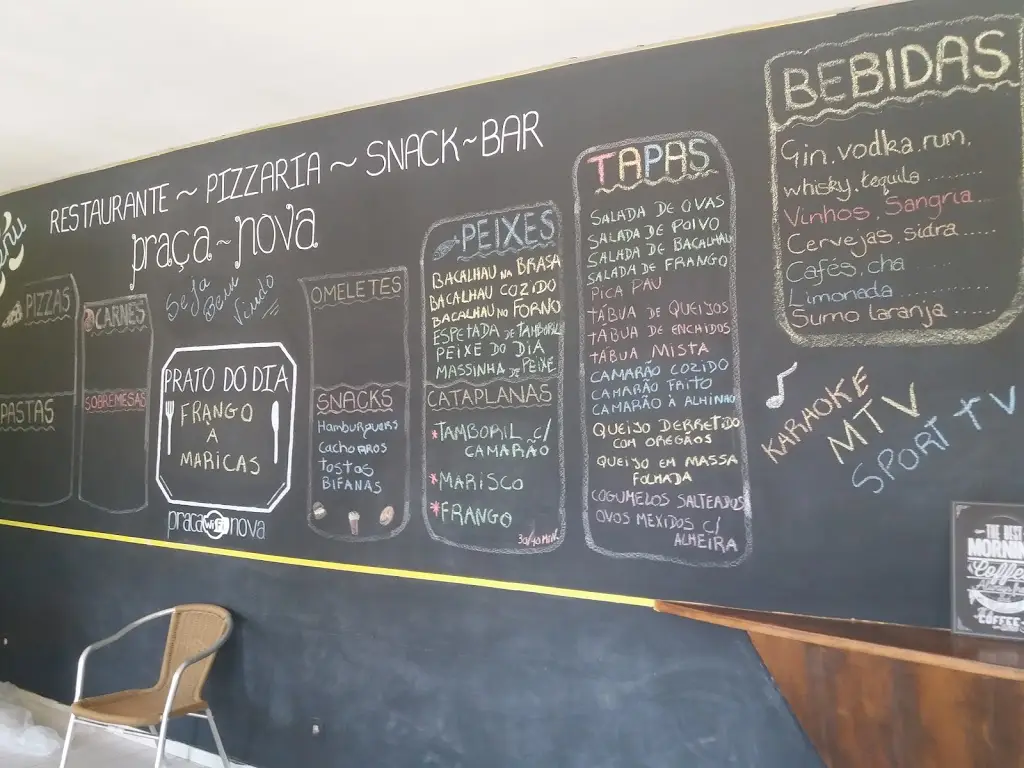 RESTAURANTE ~ PIZZARIA ~ SNACK~BAR
praça~nova
Seja
Bem
Vindo
PIZZAS
PASTAS
CARNES
SOBREMESAS
PRATO DO DIA
FRANGO
À
MARICAS
praça WiFi nova
OMELETES
SNACKS
Hamburguers
Cachorros
Tostas
BIFANAS
PEIXES
BACALHAU NA BRASA
BACALHAU COZIDO
BACALHAU NO FORNO
ESPETADA DE TAMBORIL
PEIXE DO DIA
MASSINHA DE PEIXE
CATAPLANAS
*TAMBORIL C/
CAMARÃO
*MARISCO
*FRANGO
30/40 MIN.
TAPAS
SALADA DE OVAS
SALADA DE POLVO
SALADA DE BACALHAU
SALADA DE FRANGO
PICA PAU
TÁBUA DE QUEIJOS
TÁBUA DE ENCHIDOS
TÁBUA MISTA
CAMARÃO COZIDO
CAMARÃO FRITO
CAMARÃO À ALHINHO
QUEIJO DERRETIDO
COM OREGÃOS
QUEIJO EM MASSA
FOLHADA
COGUMELOS SALTEADOS
OVOS MEXIDOS C/
ALHEIRA
BEBIDAS
Gin, vodka, rum,
whisky, tequila ........
Vinhos, Sangria....
Cervejas, sidra.....
Cafés, cha ......
Limonada ........
Sumo laranja .....
KARAOKE
MTV
SPORT TV
THE BEST
MORNING
Coffee
COFFEE